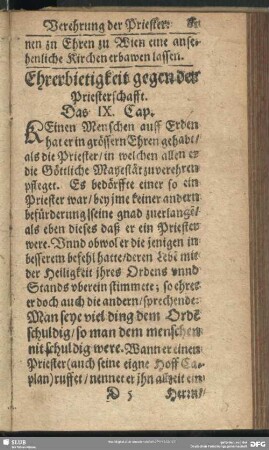 Verehrung der Priester.
nen zu Ehren zu Wien eine anse-
henliche Kirchen erbawen lassen.
Ehrerbietigkeit gegen der
Priesterschafft.
Das IX. Cap.
KEinen Menschen auff Erden
hat er in grössern Ehren gehabt/
als die Priester/ in welchen allen er
die Göttliche Mayestät zuverehren
pfleget. Es bedörffte einer so ein
Priester war/ bey jme keiner andern
befürderung/seine gnad zuerlangẽ/
als eben dieses daß er ein Priester
were. Vnnd obwol er die jenigen in
besserem befehl hatte/deren Lebẽ mit
der Heiligkeit jhres Ordens vnnd
Stands vberein stimmete; so ehret
er doch auch die andern/sprechende:
Man seye viel ding dem Ordẽ
schuldig/ so man dem menschen
nit schuldig were. Wann er einen
Priester (auch seine eigne Hoff Ca-
plan) ruffet/ nennet er jhn alzeit ein
D 5 Herrn/
SLUB
DFG